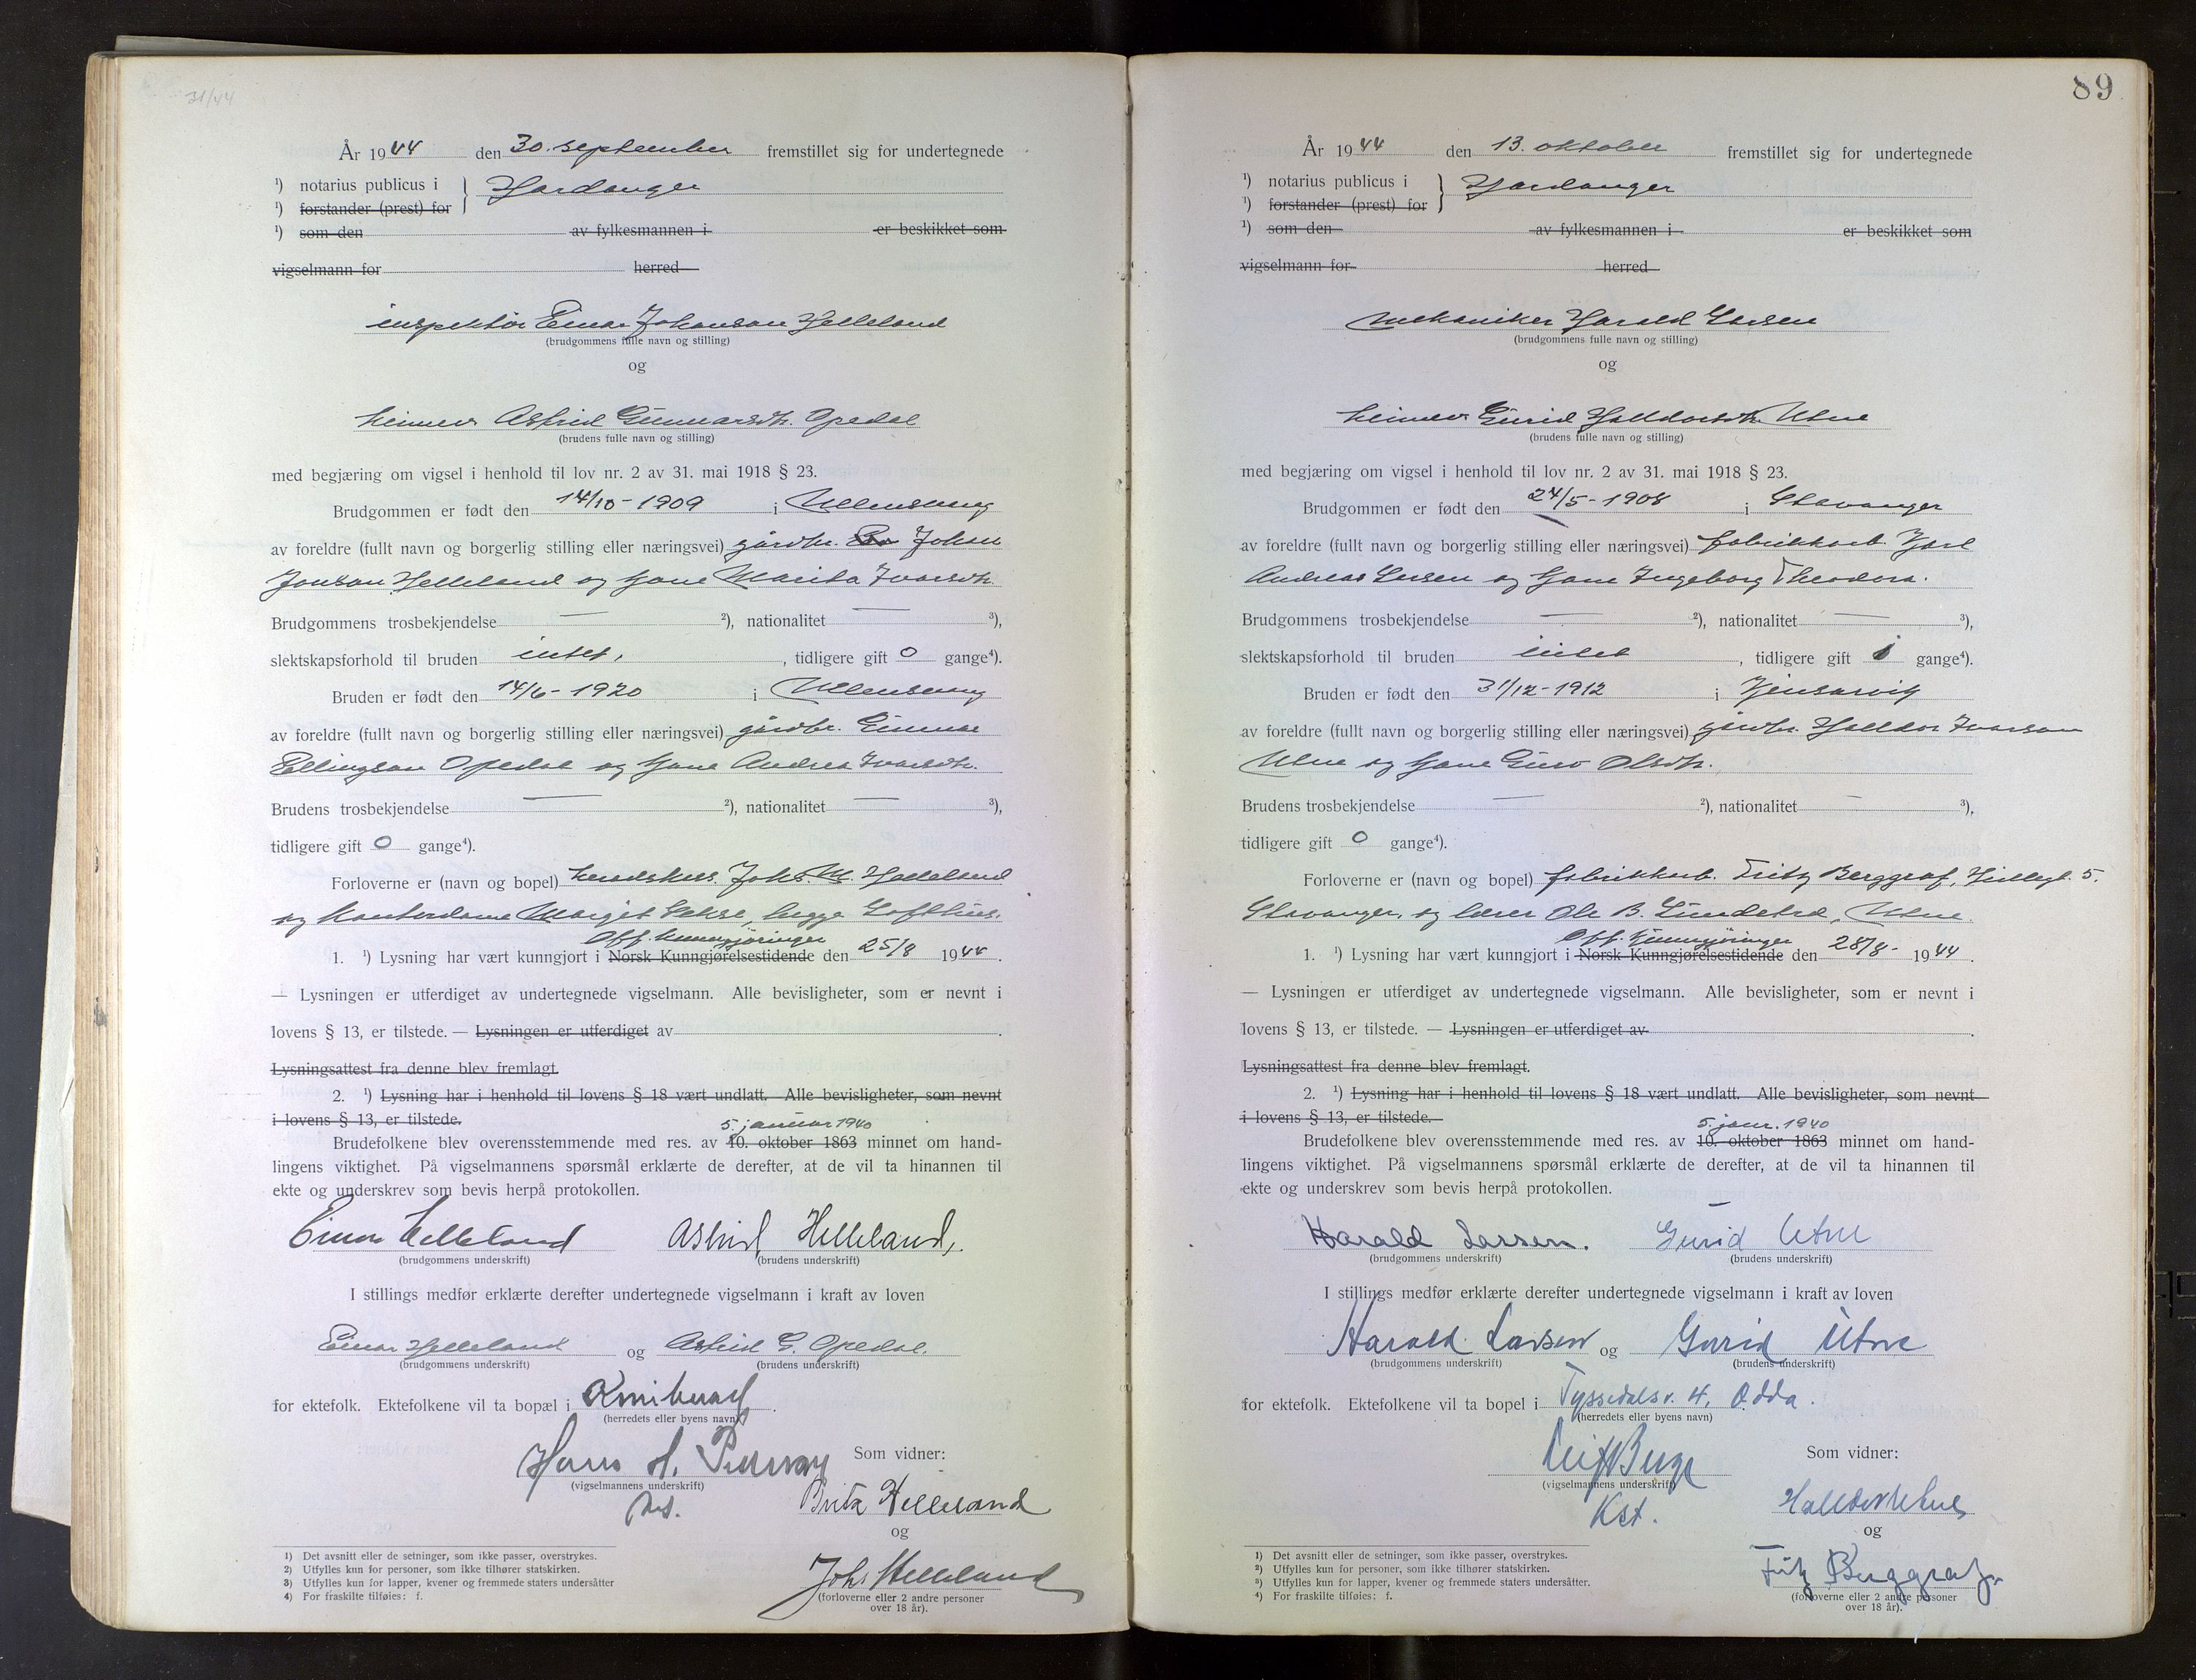 31/44
År 1944 den 30. september fremstillet sig for undertegnede
1) notarius publicus i Hardanger
1) forstander (prest) for
1) som den av fylkesmannen i er beskikket som
vigselmann for herred
inspektør Einar Johanson Helleland
(brudgommens fulle navn og stilling)
og
heimev. Astrid Gunnarsdtr. Opedal
(brudens fulle navn og stilling)
med begjæring om vigsel i henhold til lov nr. 2 av 31. mai 1918 § 23.
Brudgommen er født den 14/10-1909 i Ullensvang
av foreldre (fullt navn og borgerlig stilling eller næringsvei) gårdbr. Johan
Jonson Helleland og kone Marita Ivarsdtr.
Brudgommens trosbekjendelse — 2), nationalitet — 3),
slektskapsforhold til bruden intet, , tidligere gift 0 gange4).
Bruden er født den 14/6-1920 i Ullensvang
av foreldre (fullt navn og borgerlig stilling eller næringsvei) gårdbr. Gunnar
Ellingson Opedal og kone Andrea Ivarsdtr.
Brudens trosbekjendelse — 2), nationalitet — 3),
tidligere gift 0 gange4).
Forloverne er (navn og bopel) herredskass. Johs. M. Helleland
og kontordame Marget Sekse, begge Lofthus.
Off. kunngjøringer
1. 1) Lysning har vært kunngjort i Norsk Kunngjørelsestidende den 25/8 1944.
— Lysningen er utferdiget av undertegnede vigselmann. Alle bevisligheter, som er nevnt i
lovens § 13, er tilstede. — Lysningen er utferdiget av .
Lysningsattest fra denne blev fremlagt.
2. 1) Lysning har i henhold til lovens § 18 vært undlatt. Alle bevisligheter, som nevnt
i lovens § 13, er tilstede.
5. januar 1940
Brudefolkene blev overensstemmende med res. av 10. oktober 1863 minnet om hand-
lingens viktighet. På vigselmannens spørsmål erklærte de derefter, at de vil ta hinannen til
ekte og underskrev som bevis herpå protokollen.
Einar Helleland Astrid Helleland,.
(brudgommens underskrift) (brudens underskrift)
I stillings medfør erklærte derefter undertegnede vigselmann i kraft av loven
Einar Helleland og Astrid G. Opedal.
(brudgommens underskrift) (brudens underskrift)
for ektefolk. Ektefolkene vil ta bopæl i Kvinherad .
(herredets eller byens navn)
Hans H.
(vigselmannens underskrift)
Som vidner:
Brita Helleland
og
Johs. Helleland
(forloverne eller 2 andre personer
over 18 år).
1) Det avsnitt eller de setninger, som ikke passer, overstrykes.
2) Utfylles kun for personer, som ikke tilhører statskirken.
3) Utfylles kun for lapper, kvener og fremmede staters undersåtter
4) For fraskilte tilføies: f.
89
År 1944 den 13. oktober fremstillet sig for undertegnede
1) notarius publicus i Hardanger
1) forstander (prest) for
1) som den av fylkesmannen i er beskikket som
vigselmann for herred
mekaniker Harald Larsen
(brudgommens fulle navn og stilling)
og
heimev. Gurid Halldorsdtr. Utne
(brudens fulle navn og stilling)
med begjæring om vigsel i henhold til lov nr. 2 av 31. mai 1918 § 23.
Brudgommen er født den 24/5-1908 i Stavanger
av foreldre (fullt navn og borgerlig stilling eller næringsvei) fabrikkarb. Karl
Andreas Larsen og kone Ingeborg Theodora.
Brudgommens trosbekjendelse — 2), nationalitet — 3),
slektskapsforhold til bruden intet , tidligere gift 1 gange4).
Bruden er født den 31/12-1912 i Kinsarvik
av foreldre (fullt navn og borgerlig stilling eller næringsvei) gårdbr. Halldor Ivarson
Utne og kone Guro Olsdtr.
Brudens trosbekjendelse — 2), nationalitet — 3),
tidligere gift 0 gange4).
Forloverne er (navn og bopel) fabrikkarb. Fritz Berggraf, 5.
Stavanger, og lærer Ole B. Lundetræ, Utne.
Off. kunngjøringer
1. 1) Lysning har vært kunngjort i Norsk Kunngjørelsestidende den 28/8- 1944.
— Lysningen er utferdiget av undertegnede vigselmann. Alle bevisligheter, som er nevnt i
lovens § 13, er tilstede. — Lysningen er utferdiget av .
Lysningsattest fra denne blev fremlagt.
2. 1) Lysning har i henhold til lovens § 18 vært undlatt. Alle bevisligheter, som nevnt
i lovens § 13, er tilstede.
5. janr. 1940
Brudefolkene blev overensstemmende med res. av 10. oktober 1863 minnet om hand-
lingens viktighet. På vigselmannens spørsmål erklærte de derefter, at de vil ta hinannen til
ekte og underskrev som bevis herpå protokollen.
Harald Larsen. Gurid Utne
(brudgommens underskrift) (brudens underskrift)
I stillings medfør erklærte derefter undertegnede vigselmann i kraft av loven
Harald Larsen og Gurid Utne
(brudgommens underskrift) (brudens underskrift)
for ektefolk. Ektefolkene vil ta bopel i Tyssedalsv. 4, Odda.
(herredets eller byens navn)
Leif Berge
(vigselmannens underskrift)
Kst.
Som vidner:
Halldor Utne
og
Fritz Berggraf
(forloverne eller 2 andre personer
over 18 år).
1) Det avsnitt eller de setninger, som ikke passer, overstrykes.
2) Utfylles kun for personer, som ikke tilhører statskirken.
3) Utfylles kun for lapper, kvener og fremmede staters undersåtter.
4) For fraskilte tilføies: f.